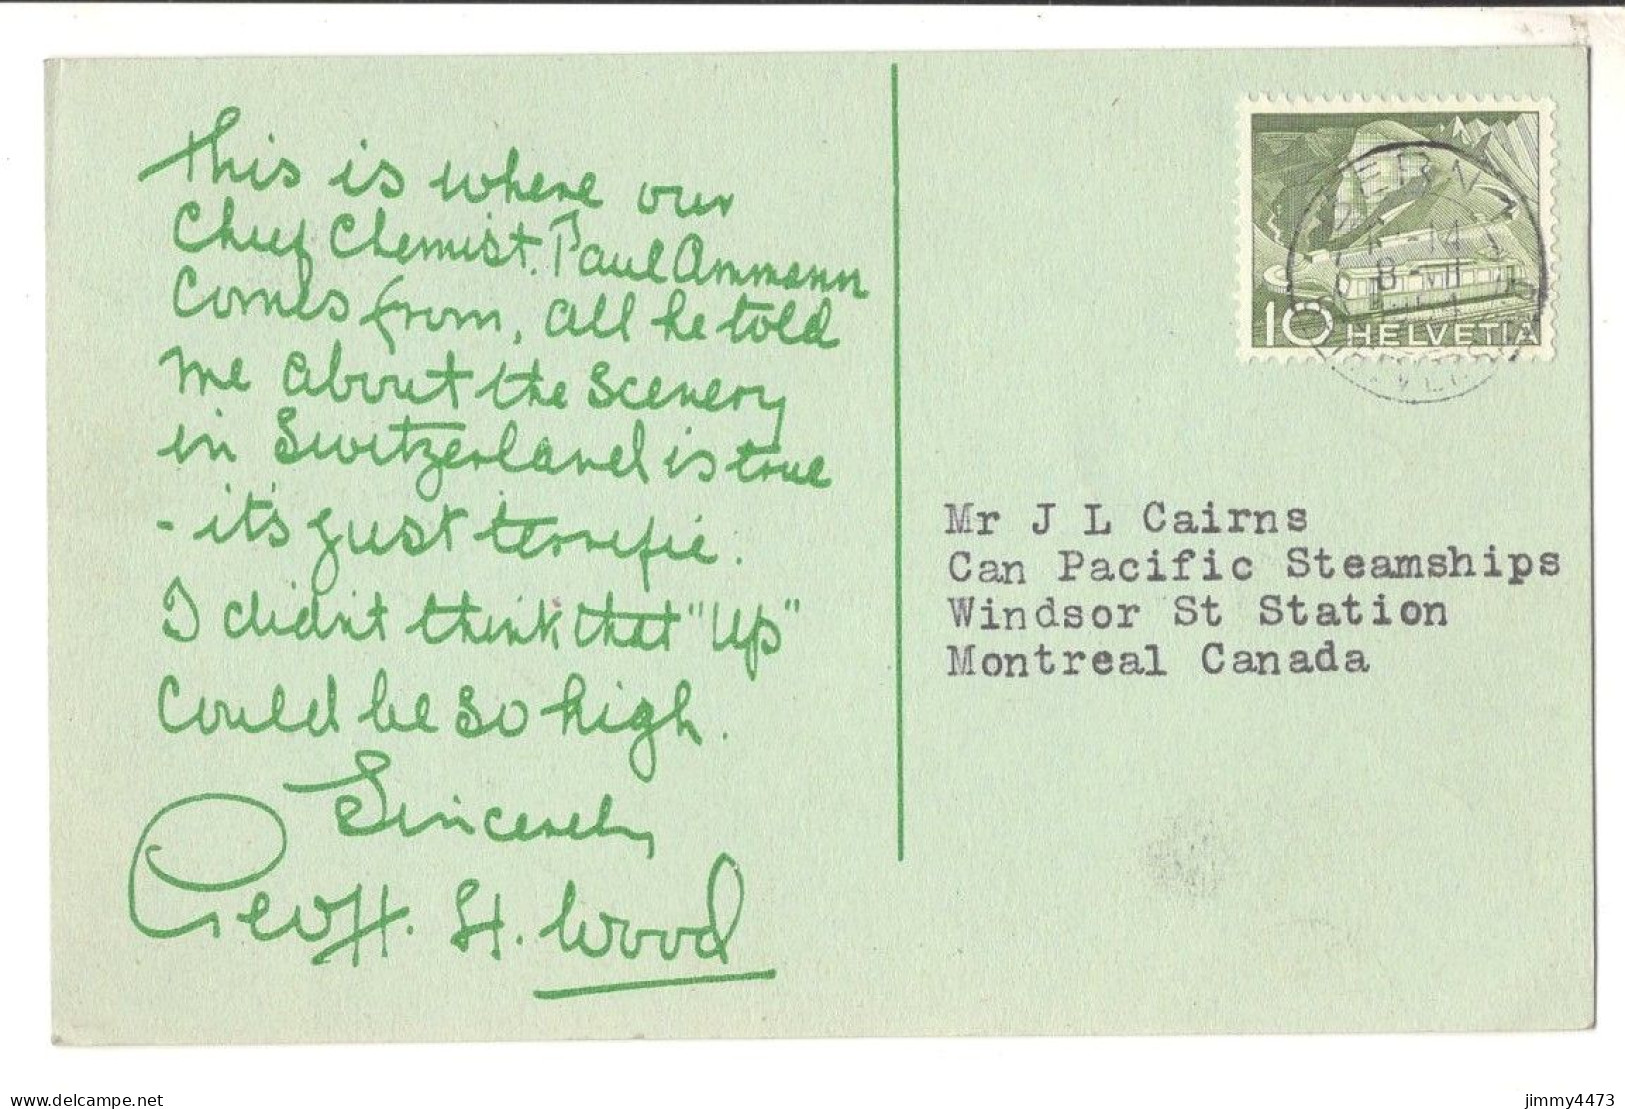 This is where our
Chief Chemist. Paul Ammann
Comes from, all he told
me about the scenery
in Switzerland is true
- it's just terrific.
I didn't think that "Up"
Could be so high.
Sincerely
Geoff. H. Wood
BERN
-14
8-VII
10 HELVETIA
Mr J L Cairns
Can Pacific Steamships
Windsor St Station
Montreal Canada
delcampe.net
jimmy4473